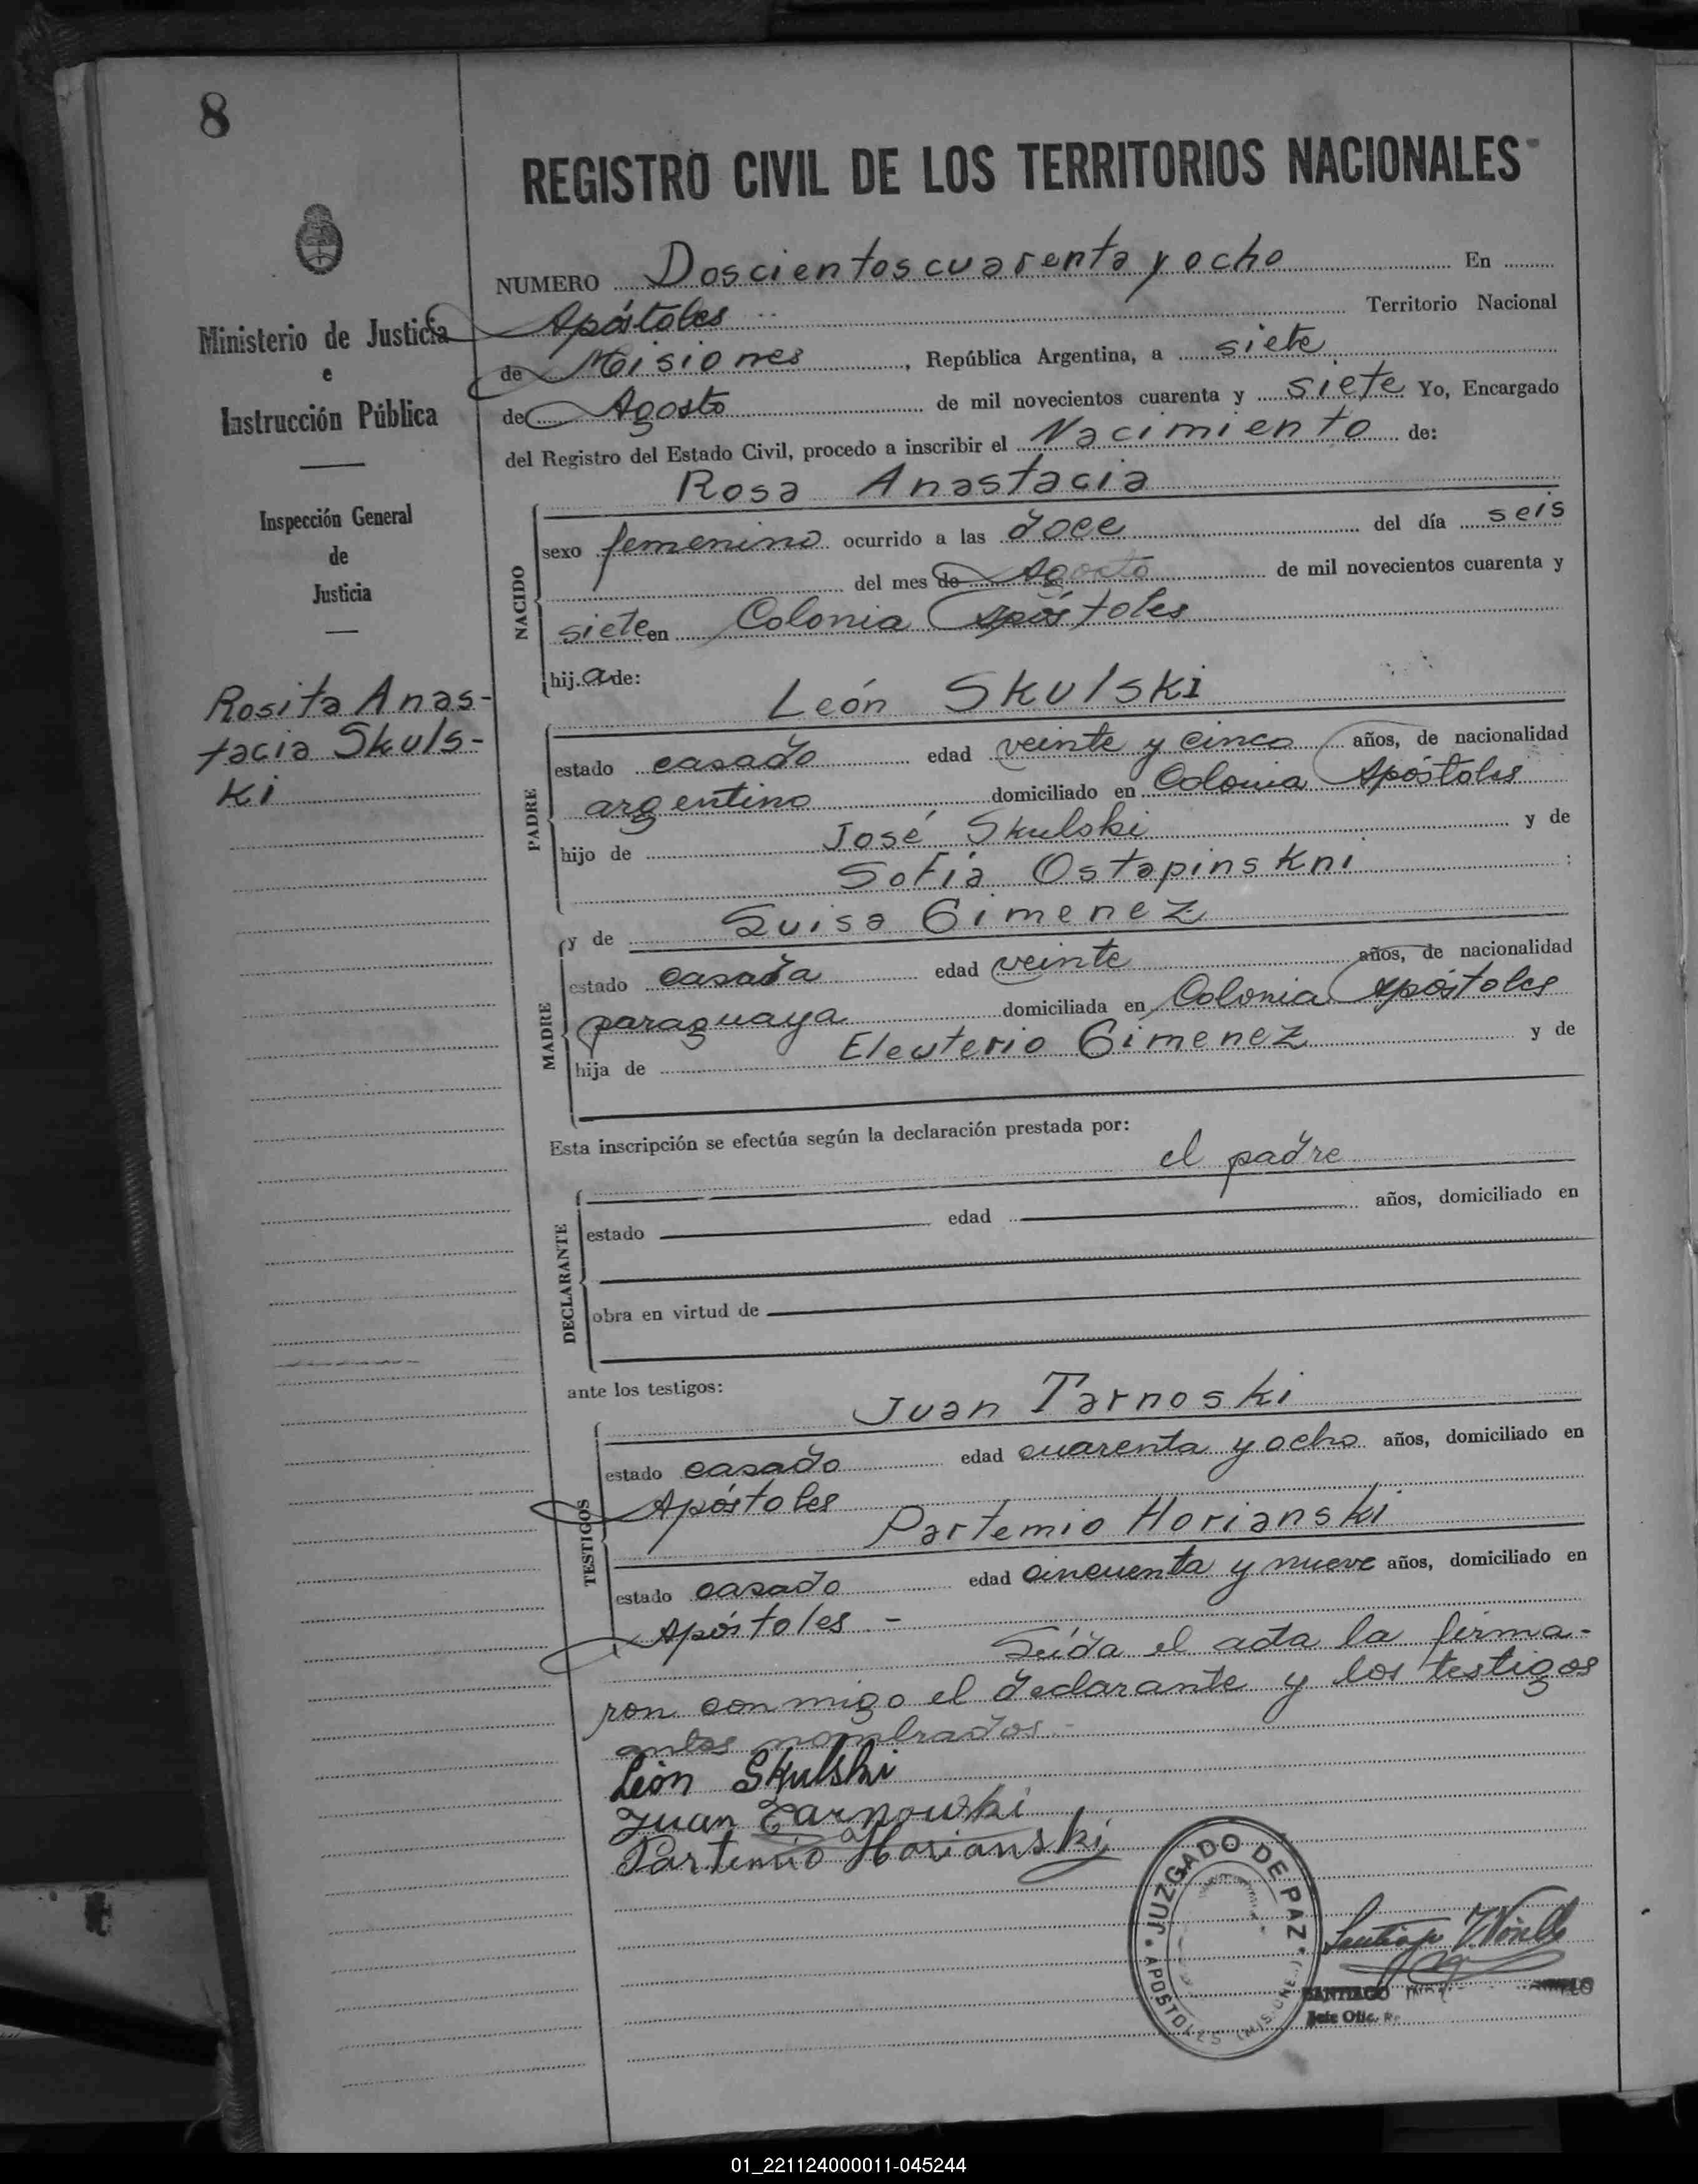 8
REGISTRO CIVIL DE LOS TERRITORIOS NACIONALES
Ministerio de Justicia
e
Instrucción Pública
Inspección General
de
Justicia
Rosita Anas-
tacia Skuls-
ki
NUMERO Doscientos cuarenta y ocho En
Apóstoles Territorio Nacional
de Misiones, República Argentina, a siete
de Agosto de mil novecientos cuarenta y siete Yo, Encargado
del Registro del Estado Civil, procedo a inscribir el Nacimiento de:
Rosa Anastacia
NACIDO
sexo femenino ocurrido a las doce del día seis
del mes de Agosto de mil novecientos cuarenta y
siete en Colonia Apóstoles
hija de:
León Skulski
PADRE
estado casado edad veinte y cinco años, de nacionalidad
argentino domiciliado en Colonia Apóstoles
hijo de José Skulski y de
Sofía Ostapinskni :
y de Luisa Gimenez
MADRE
estado casada edad veinte años, de nacionalidad
paraguaya domiciliada en Colonia Apóstoles
hija de Eleuterio Gimenez y de
Esta inscripción se efectúa según la declaración prestada por:
el padre
DECLARANTE
estado edad años, domiciliado en
obra en virtud de
ante los testigos:
Juan Tarnoski
TESTIGOS
estado casado edad cuarenta y ocho años, domiciliado en
Apóstoles
Partemio Horianski
estado casado edad cincuenta y nueve años, domiciliado en
Apóstoles -
Leída el acta la firma-
ron conmigo el declarante y los testigos
antes nombrados.-
León Skulski
Juan Tarnowski
Partemio Horianski
JUZGADO DE PAZ
APOSTOLES (MISIONES)
SANTIAGO
Jefe Ofic.
01_221124000011-045244